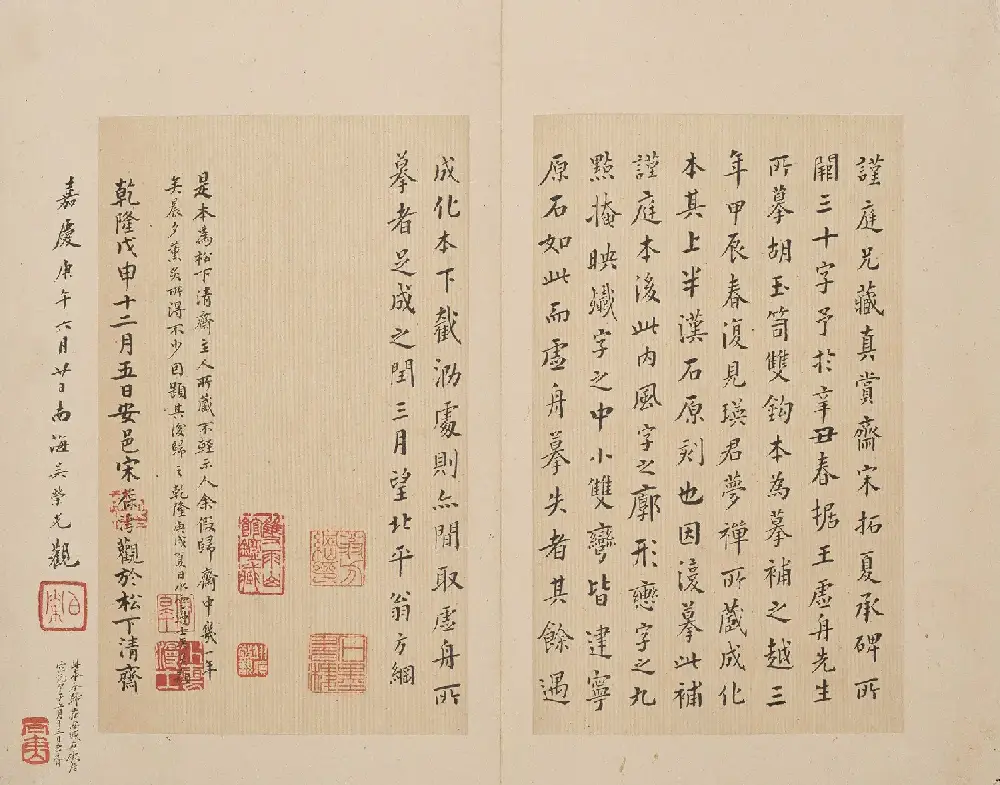 謹庭兄藏真賞齋宋拓夏承碑所
闕三十字予於辛丑春据王虛舟先生
所摹胡玉筍雙鈎本為摹補之越三
年甲辰春復見瑛君夢禪所藏成化
本其上半漢石原刻也因復摹此補
謹庭本後此內風字之廓形戀字之九
點掩映孅字之中小雙巒皆建寧
原石如此而虛舟摹失者其餘遇
成化本下截泐處則亦間取虛舟所
摹者足成之閏三月望北平翁方綱
是本為松下清齋主人所藏不輕示人余假歸齋中幾一年
矣晨夕薰炙所得不少因題其後歸之乾隆庚戌夏日
乾隆戊申十二月五日安邑宋葆淳觀於松下清齋
嘉慶庚午六月廿日南海吳榮光觀
伯榮